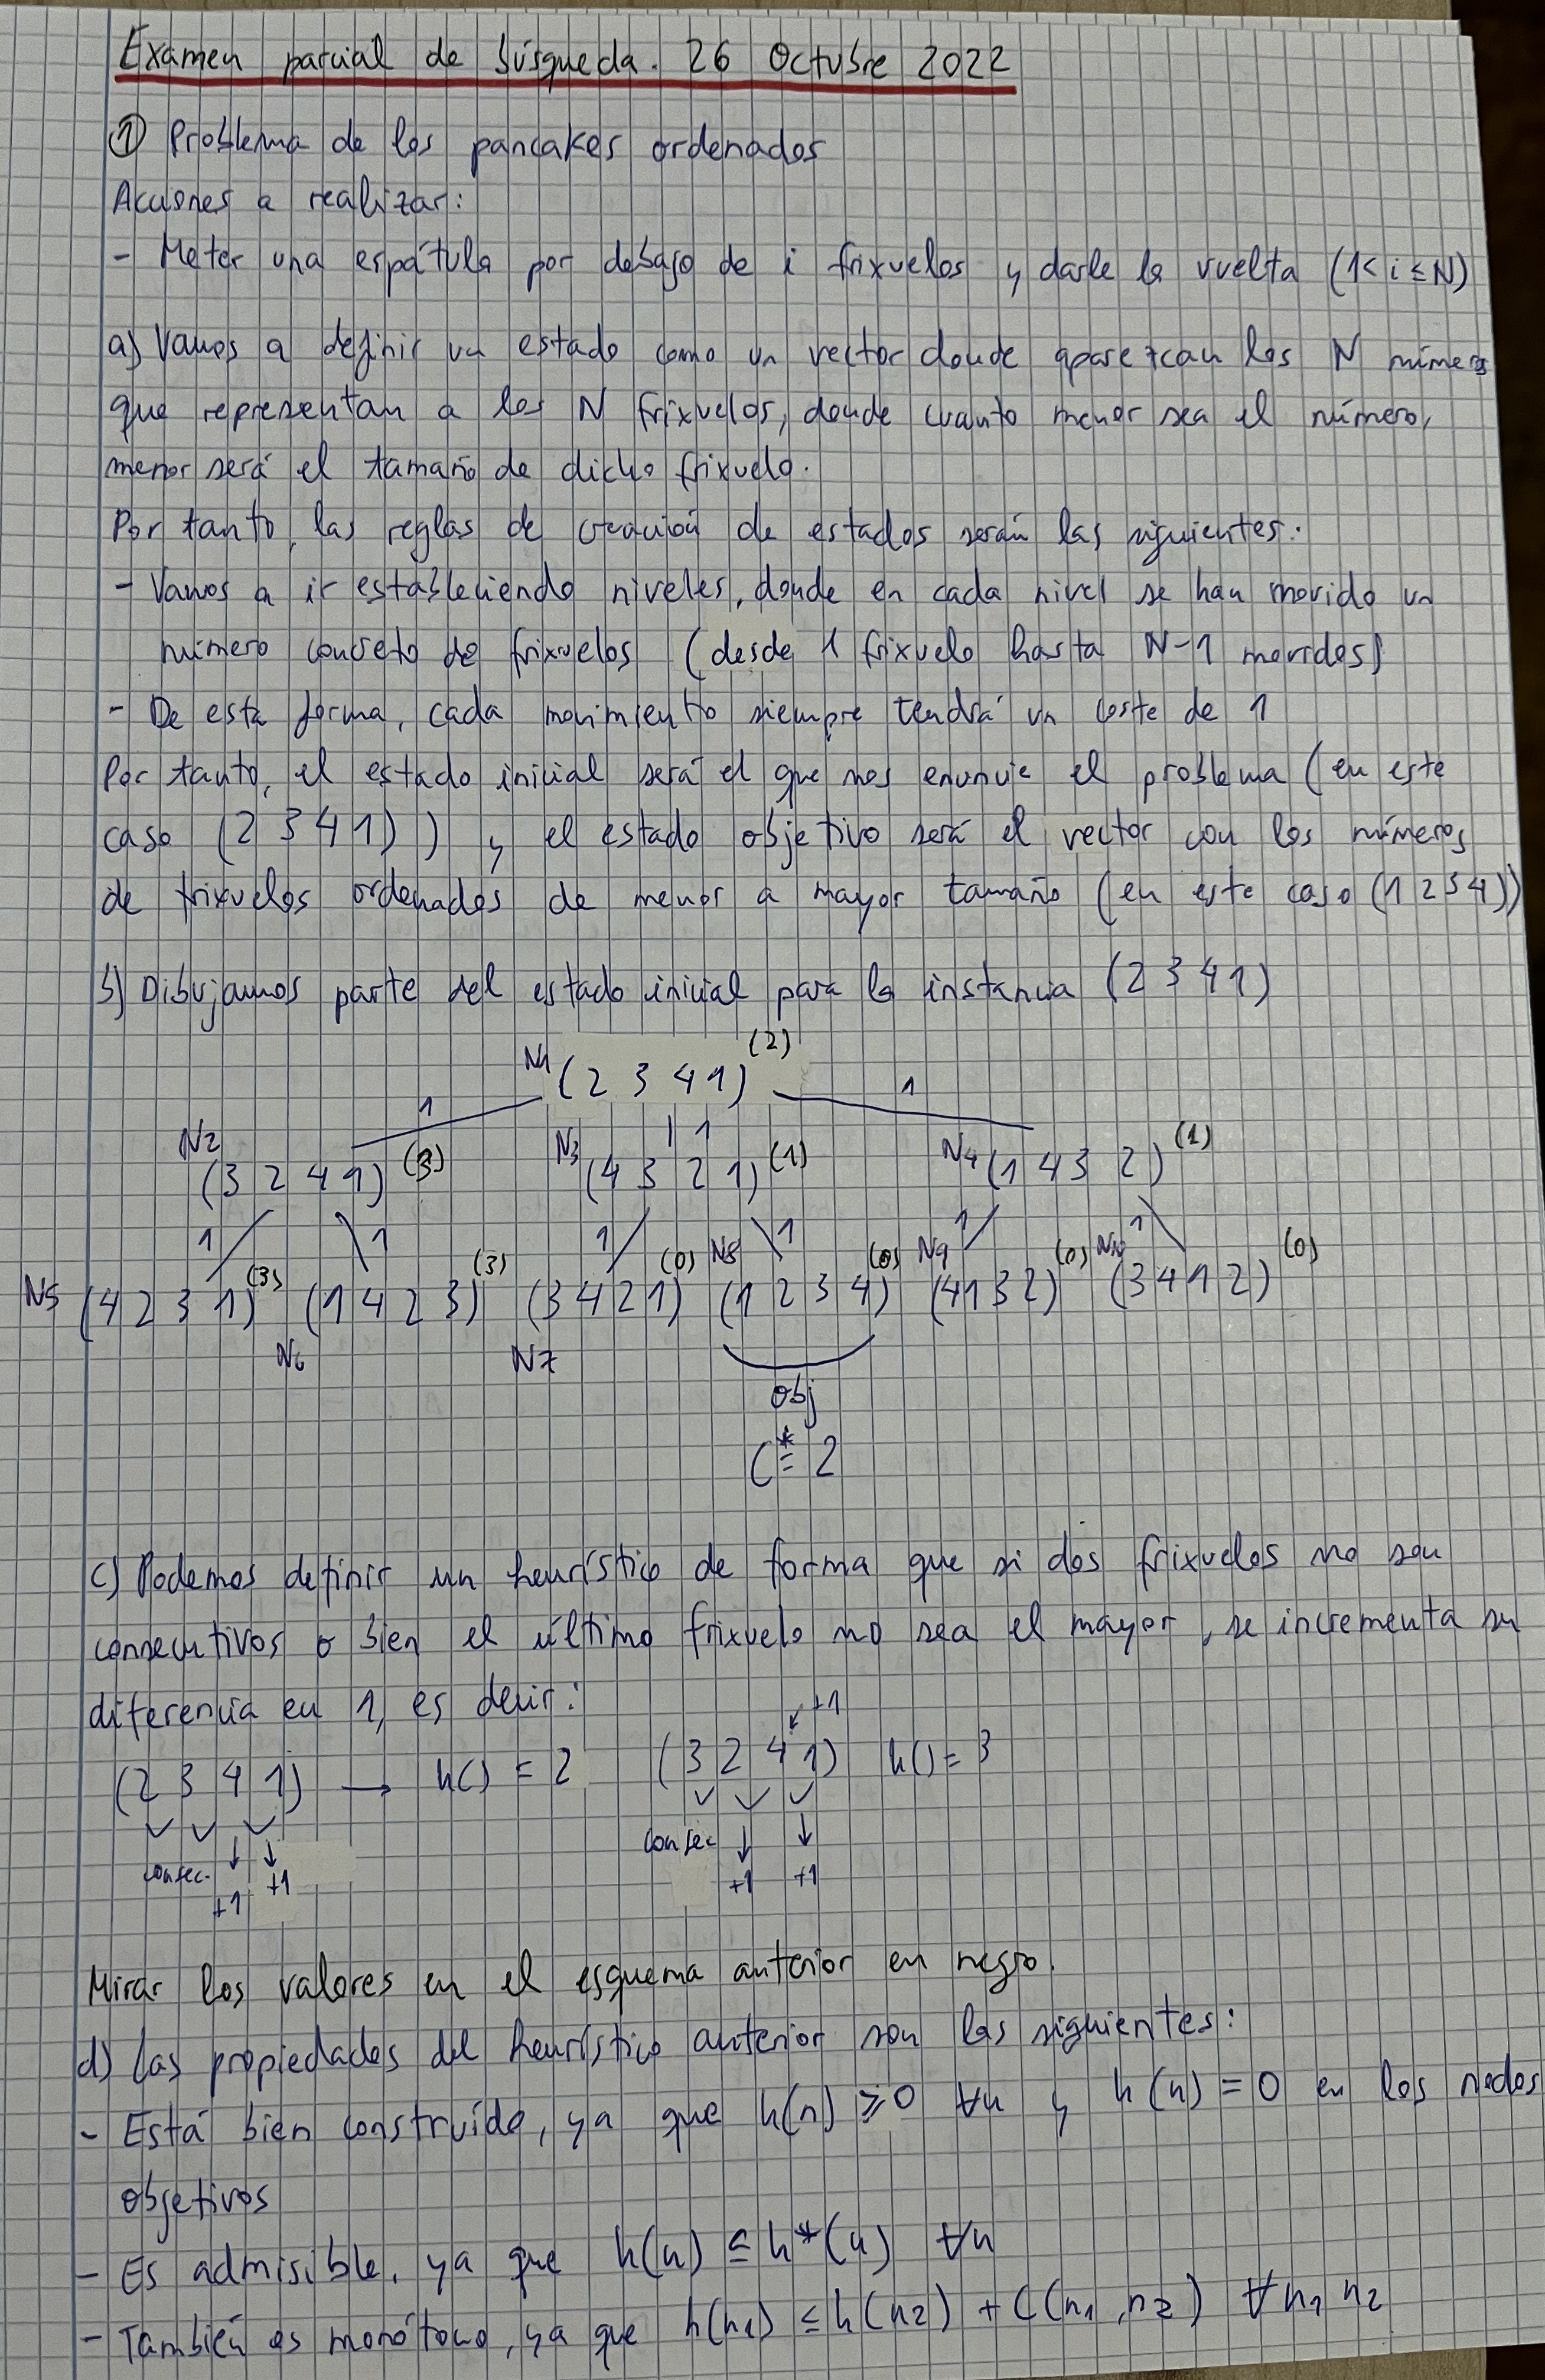 Examen parcial de búsqueda. 26 Octubre 2022
① Problema de los pancakes ordenados
Acciones a realizar:
- Meter una espátula por debajo de i frixuelos y darle la vuelta (1 < i ≤ N)
a) Vamos a definir un estado como un vector donde aparezcan los N números
que representan a los N frixuelos, donde cuanto menor sea el número,
menor será el tamaño de dicho frixuelo.
Por tanto, las reglas de creación de estados serán las siguientes:
- Vamos a ir estableciendo niveles, donde en cada nivel se han movido un
número concreto de frixuelos (desde 1 frixuelo hasta N-1 movidos)
- De esta forma, cada movimiento siempre tendrá un coste de 1
Por tanto, el estado inicial será el que nos enuncie el problema (en este
caso (2 3 4 1)) y el estado objetivo será el vector con los números
de frixuelos ordenados de menor a mayor tamaño (en este caso (1 2 3 4))
b) Dibujamos parte del estado inicial para la instancia (2 3 4 1)
N1 (2 3 4 1) (2)
1 1 1
N2 (3 2 4 1) (3) N3 (4 3 2 1) (1) N4 (1 4 3 2) (1)
1 1 1 1 1 1
N5 (4 2 3 1) (3) N6 (1 4 2 3) (3) N7 (3 4 2 1) (0) N8 (1 2 3 4) (0) N9 (4 1 3 2) (0) N10 (3 4 1 2) (0)
obj
C* = 2
c) Podemos definir un heurístico de forma que si dos frixuelos no son
consecutivos o bien el último frixuelo no sea el mayor, se incrementa su
diferencia en 1, es decir:
(2 3 4 1) → h() = 2 (3 2 4 1) +1 h() = 3
consec. +1 +1 consec +1 +1
Mirar los valores en el esquema anterior en negro.
d) Las propiedades del heurístico anterior son las siguientes:
- Está bien construído, ya que h(n) ≥ 0 ∀n y h(n) = 0 en los nodos
objetivos
- Es admisible, ya que h(n) ≤ h*(n) ∀n
- También es monótono, ya que h(n1) ≤ h(n2) + C(n1, n2) ∀ n1 n2